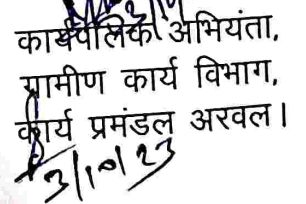 कार्यपालक अभियंता,
ग्रामीण कार्य विभाग,
कार्य प्रमंडल अरवल।
3/10/23